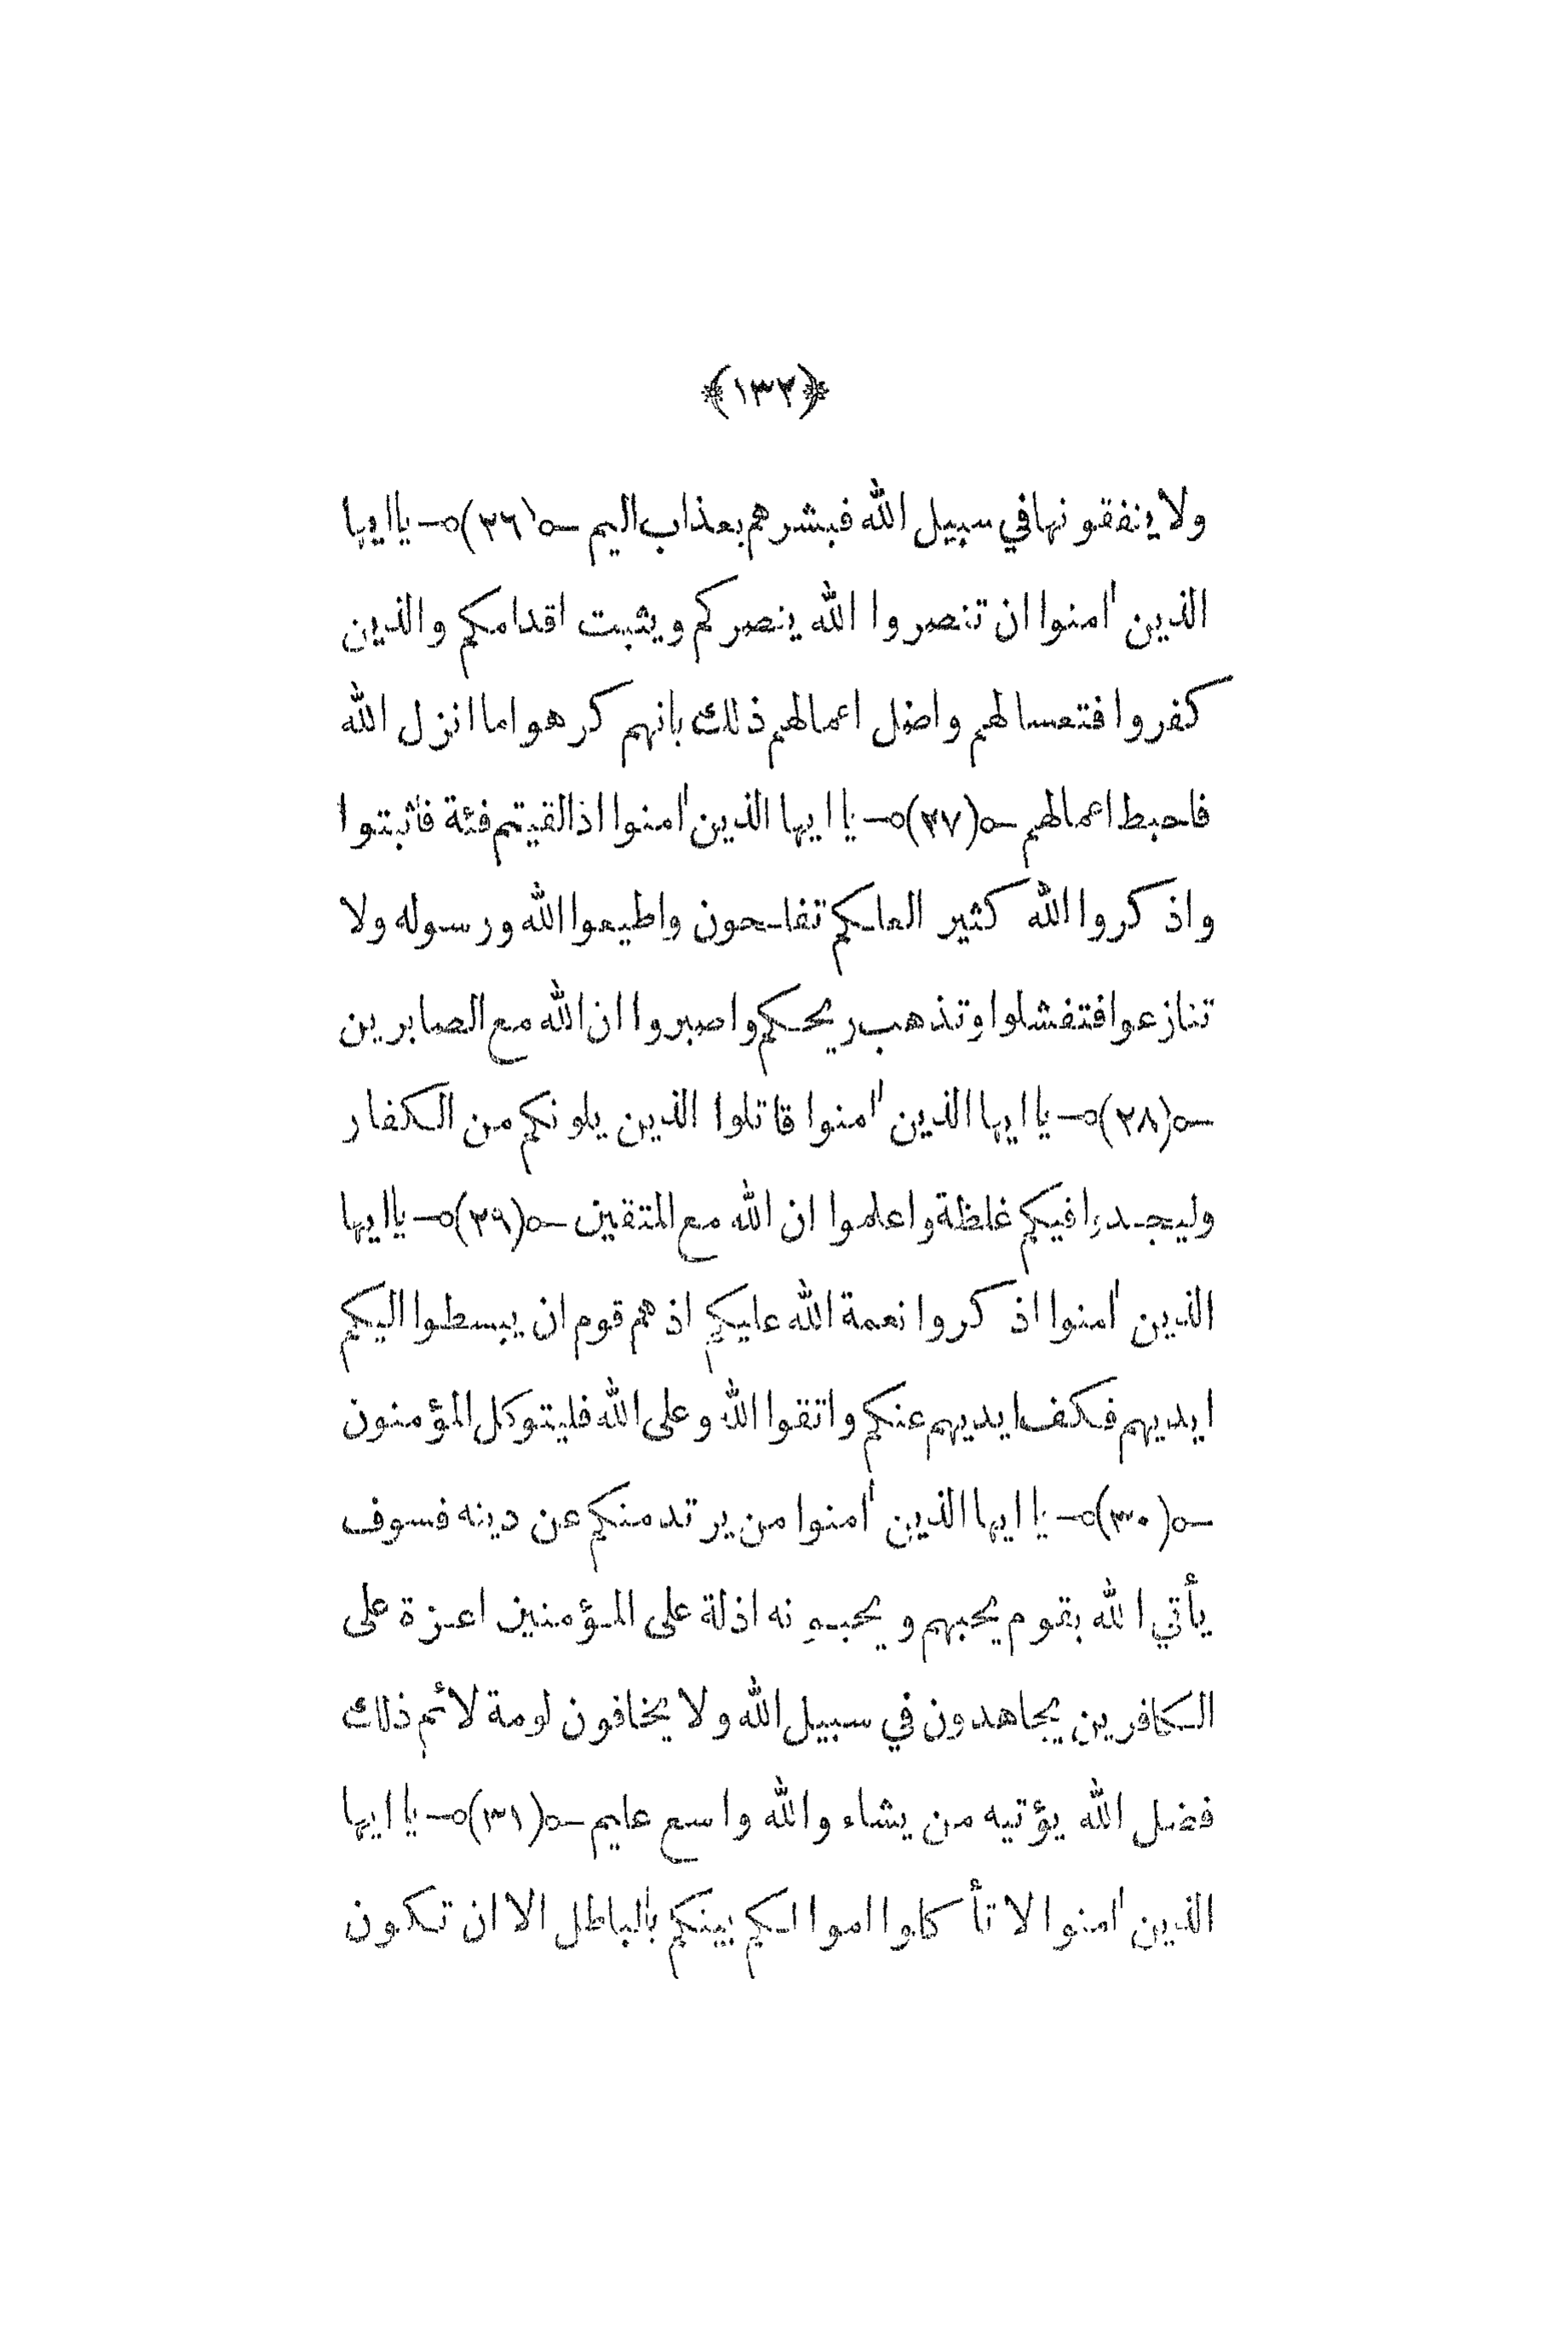 ﴿١٣٢﴾
ولا ينفقونها في سبيل الله فبشرهم بعذاب اليم —٥(٢٦)٥— يا ايها
الذين اٰمنوا ان تنصروا الله ينصركم ويثبت اقدامكم والذين
كفروا فتعسا لهم واضل اعمالهم ذلك بانهم كرهوا ما انزل الله
فاحبط اعمالهم —٥(٢٧)٥— يا ايها الذين اٰمنوا اذا لقيتم فئة فأثبتوا
واذكروا الله كثيرا لعلكم تفلحون واطيعوا الله ورسوله ولا
تنازعوا فتفشلوا وتذهب ريحكم واصبروا ان الله مع الصابرين
—٥(٢٨)٥— يا ايها الذين اٰمنوا قاتلوا الذين يلونكم من الكفار
وليجدوا فيكم غلظة واعلموا ان الله مع المتقين —٥(٢٩)٥— يا ايها
الذين اٰمنوا اذكروا نعمة الله عليكم اذ هم قوم ان يبسطوا اليكم
ايديهم فكف ايديهم عنكم واتقوا الله وعلى الله فليتوكل المؤمنون
—٥(٣٠)٥— يا ايها الذين اٰمنوا من يرتد منكم عن دينه فسوف
يأتي الله بقوم يحبهم ويحبونه اذلة على المؤمنين اعزة على
الكافرين يجاهدون في سبيل الله ولا يخافون لومة لائم ذلك
فضل الله يؤتيه من يشاء والله واسع عليم —٥(٣١)٥— يا ايها
الذين اٰمنوا لا تأكلوا اموالكم بينكم بالباطل الا ان تكون